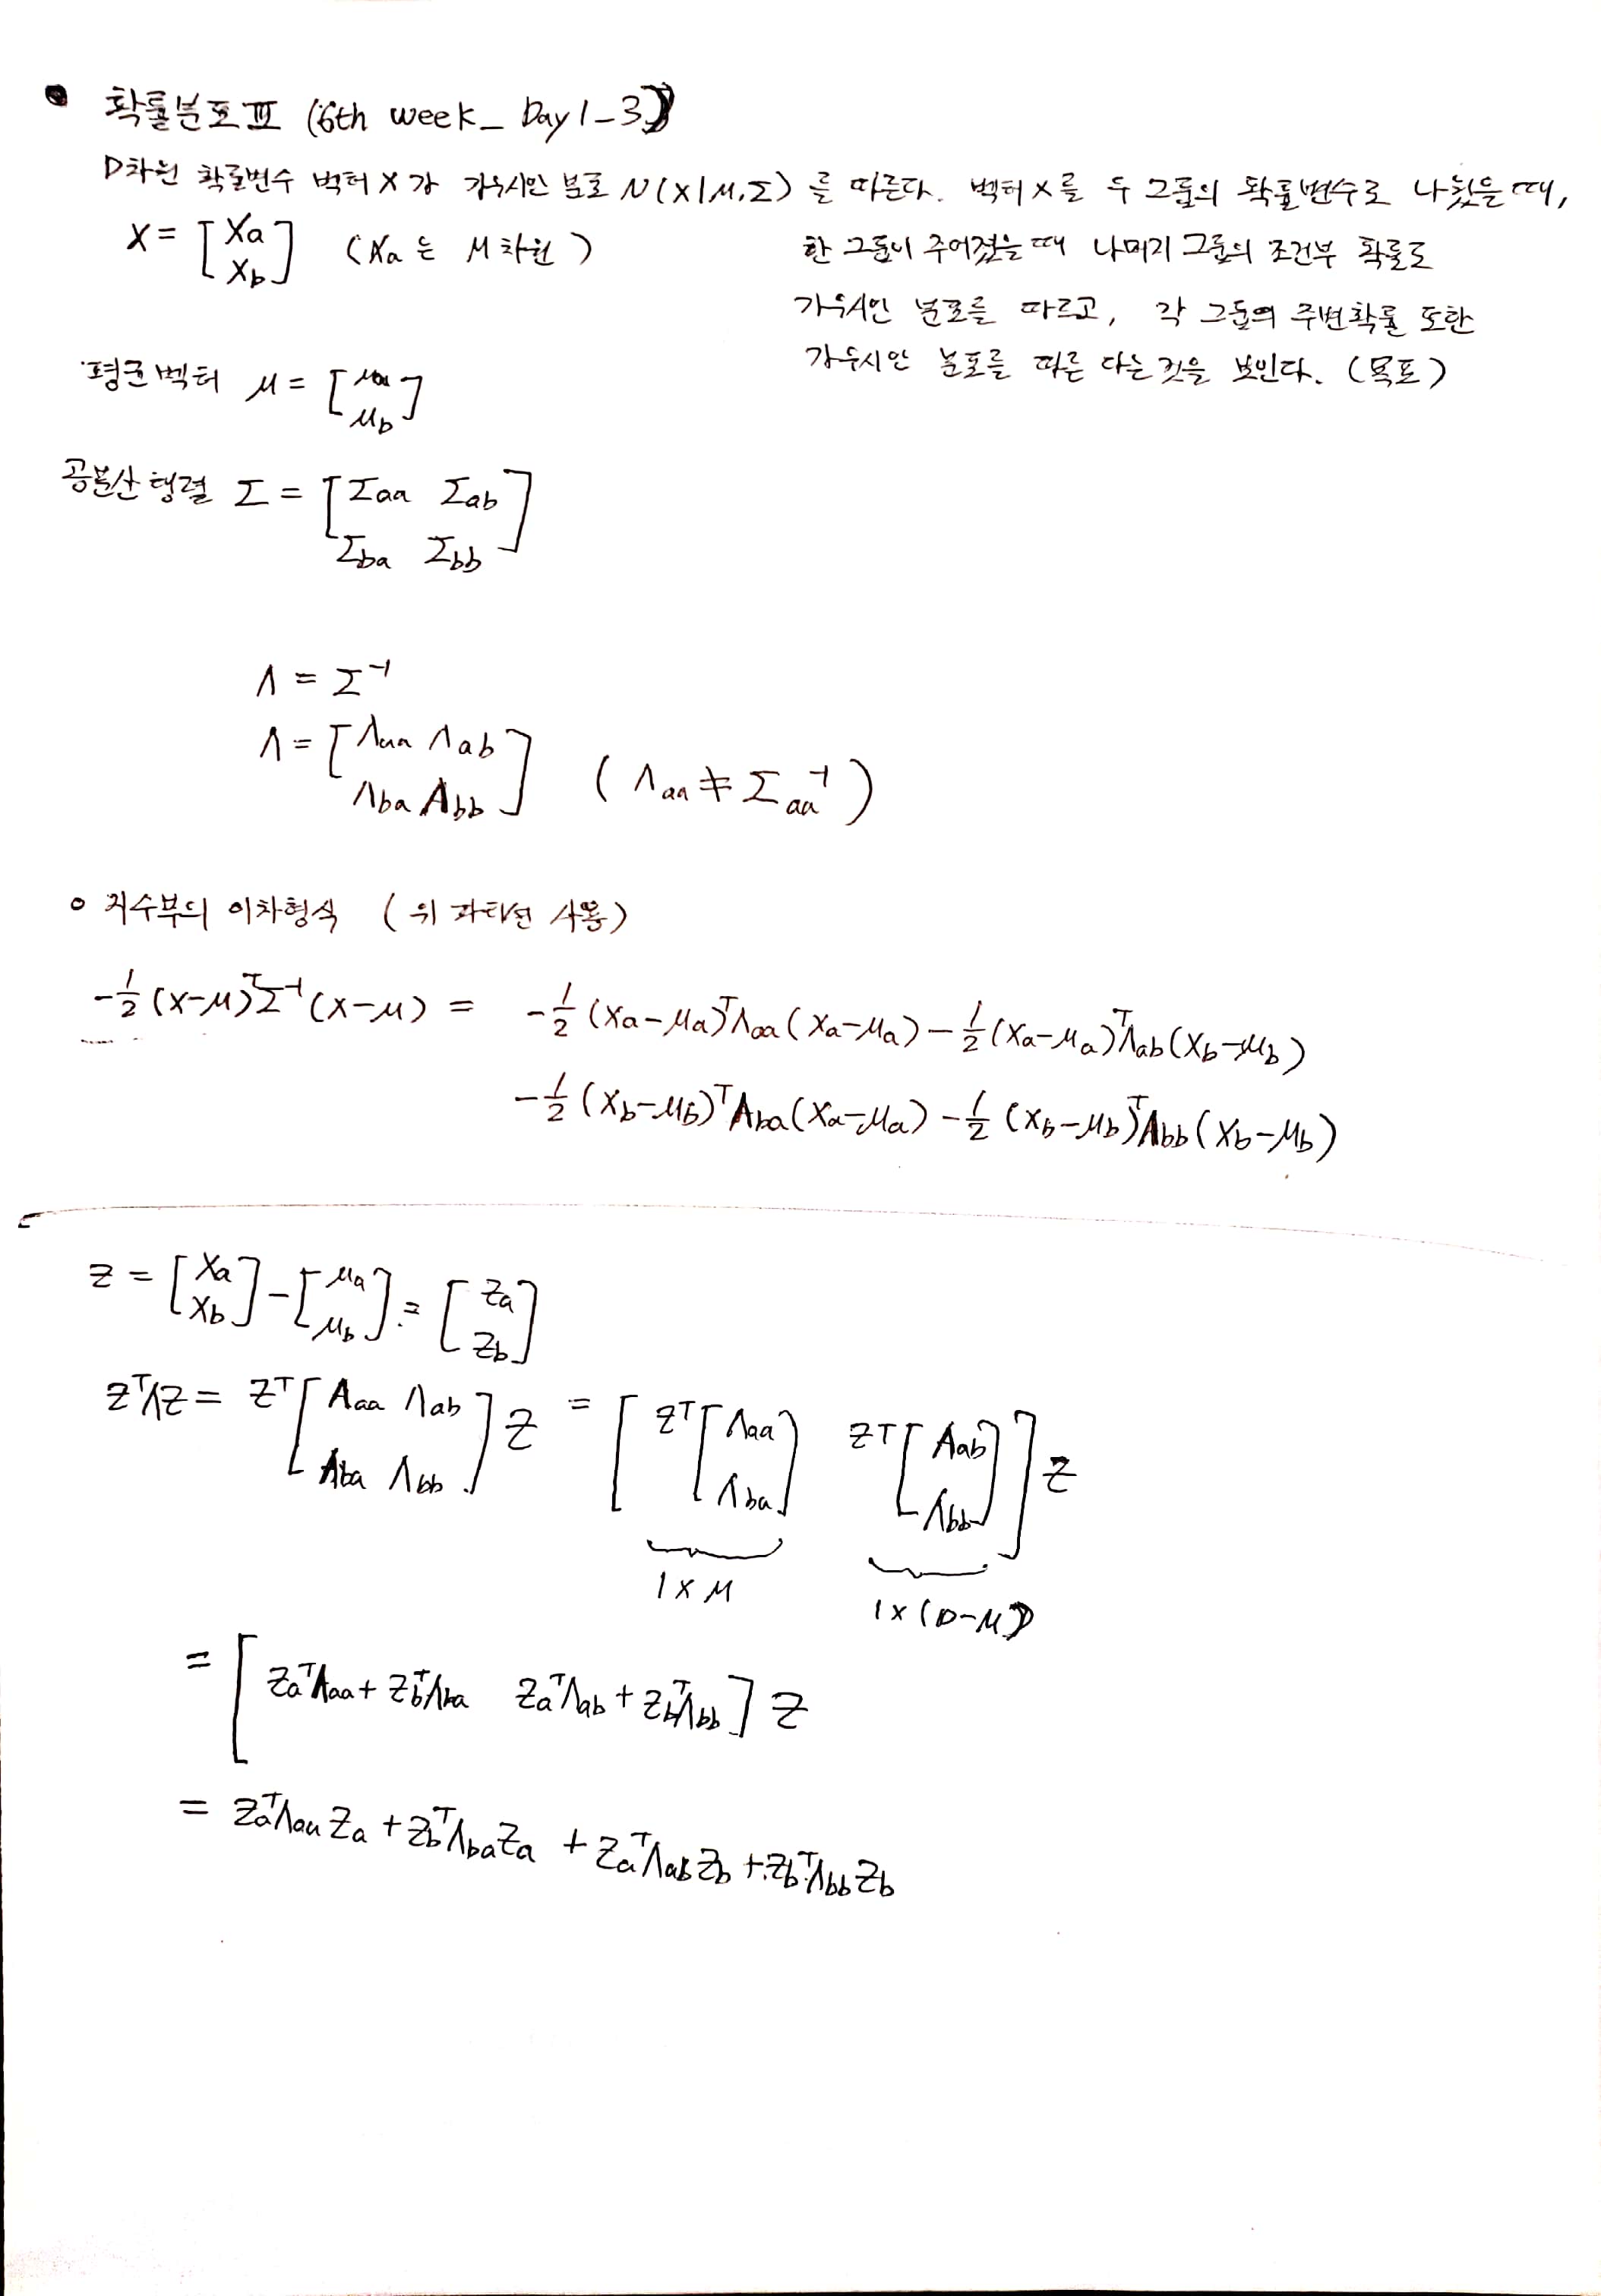 ● 확률분포 III (6th week_ Day 1-3)
D차원 확률변수 벡터 x가 가우시안 분포 N(x|μ,Σ)를 따른다. 벡터 x를 두 그룹의 확률변수로 나눴을 때,
한 그룹이 주어졌을 때 나머지 그룹의 조건부 확률도
가우시안 분포를 따르고, 각 그룹의 주변확률 또한
가우시안 분포를 따른 다는 것을 보인다. (목표)
x = [xa xb] (xa는 M차원)
평균벡터 μ = [μa μb]
공분산 행렬 Σ = [Σaa Σab
Σba Σbb]
Λ = Σ⁻¹
Λ = [Λaa Λab
Λba Λbb] (Λaa ≠ Σaa⁻¹)
○ 지수부의 이차형식 (위 파티션 사용)
-1/2 (x-μ)ᵀΣ⁻¹(x-μ) = -1/2 (xa-μa)ᵀΛaa(xa-μa) - 1/2 (xa-μa)ᵀΛab(xb-μb)
-1/2 (xb-μb)ᵀΛba(xa-μa) - 1/2 (xb-μb)ᵀΛbb(xb-μb)
z = [xa xb] - [μa μb] = [za zb]
zᵀΛz = zᵀ[Λaa Λab
Λba Λbb] z = [zᵀ[Λaa Λba] zᵀ[Λab Λbb]] z
1×M 1×(D-M)
= [zaᵀΛaa + zbᵀΛba zaᵀΛab + zbᵀΛbb] z
= zaᵀΛaa za + zbᵀΛba za + zaᵀΛab zb + zbᵀΛbb zb